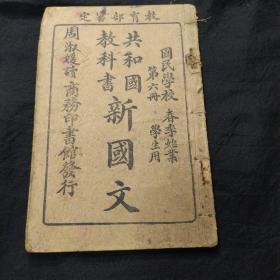 教育部審定
國民學校
春季始業
學生用
第六冊
共和國
教科書
新國文
商務印書館發行
周淑媛讀